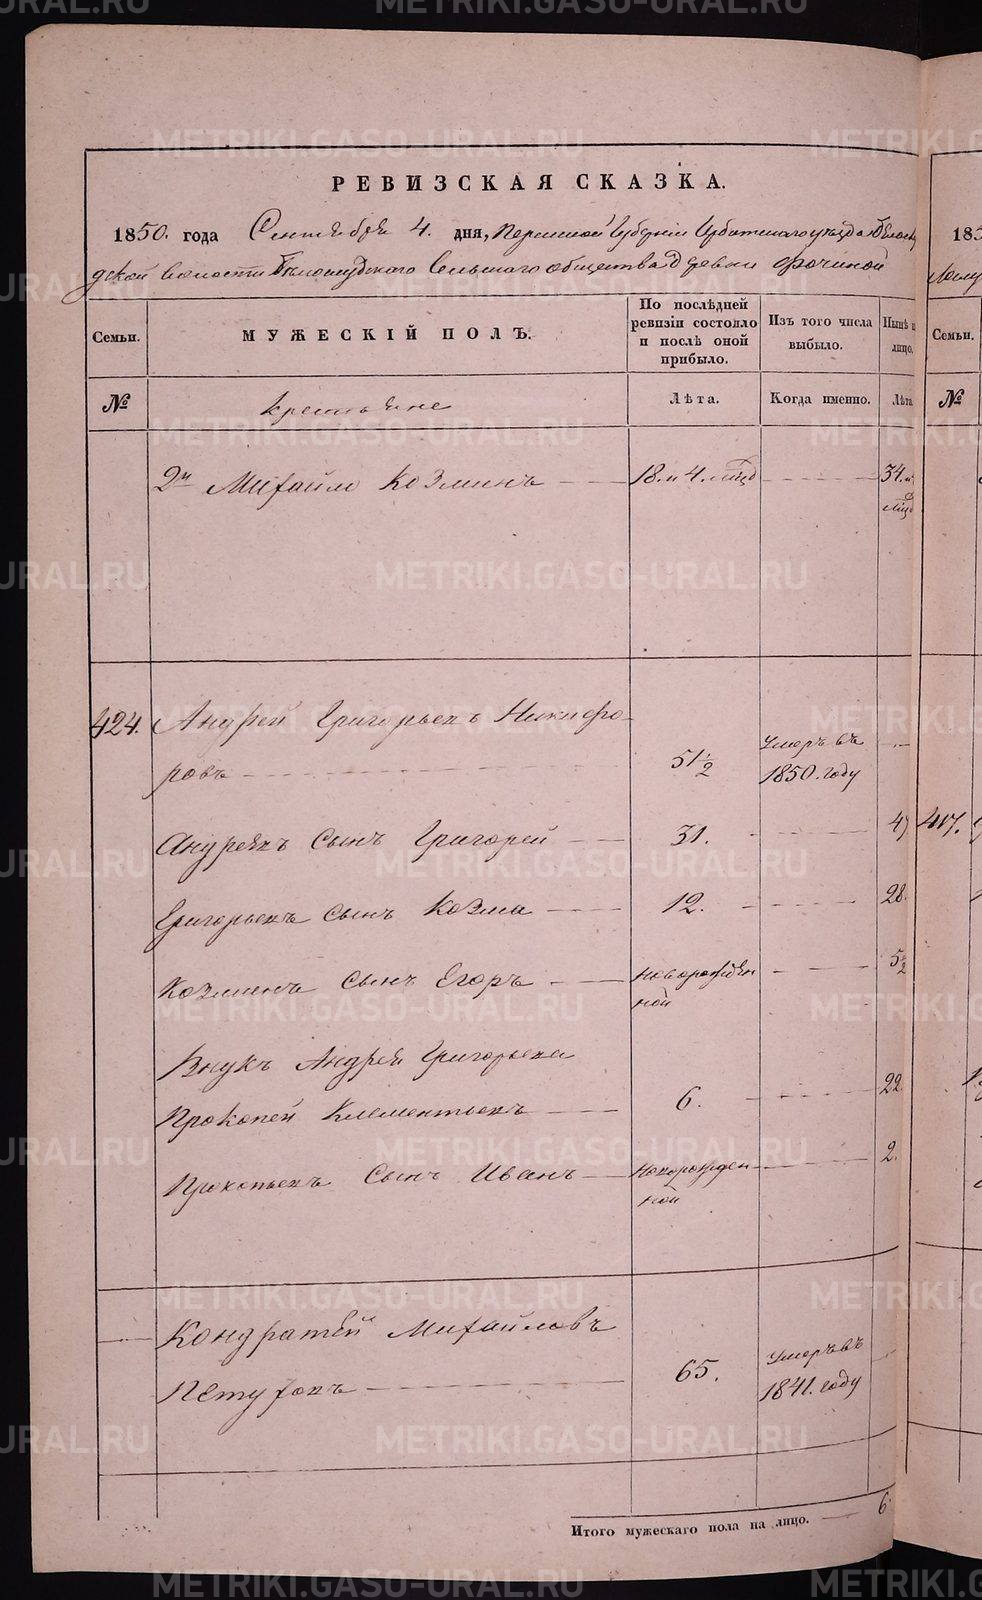 METRIKI.GASO-URAL.RU
РЕВИЗСКАЯ СКАЗКА.
1850. года Сентября 4. дня, Пермской Губернии Ирбитскаго уезда Белослу
дской волости Белослудского Сельского общества Деревни Фочиной
Семьи.
МУЖЕСКІЙ ПОЛЪ.
По послѣдней ревизіи состояло и послѣ оной прибыло.
Изъ того числа выбыло.
Нынѣ
лицо.
№
крестьяне
Лѣта.
Когда именно.
Лѣта
2й Михайло Козминъ 18. и 4. мѣц 34. и
мѣц
424. Андрей Григорьевъ Никифо-
ровъ 51 1/2 Умеръ въ
1850. году
Андреевъ Сынъ Григорей 31. 47
Григорьевъ Сынъ Козма 12. 28.
Козминъ Сынъ Егоръ новорожден
ной 5 1/2
Внукъ Андрея Григорьева
Прокопей Клементьевъ 6. 22.
Прокопьевъ Сынъ Иванъ Новорожден
ной 2.
Кондратей Михайловъ
Петуховъ 65. Умеръ въ
1841. году
Итого мужескаго пола на лицо. 6
185
Семьи.
№
417.